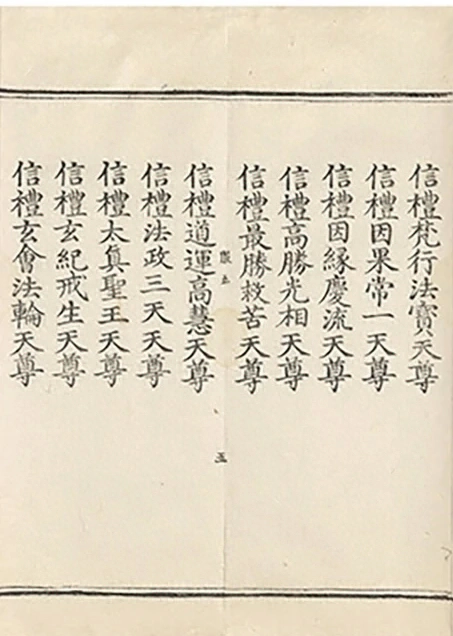 信禮梵行法寶天尊
信禮因果常一天尊
信禮因緣慶流天尊
信禮高勝光相天尊
信禮最勝救苦天尊
五
信禮道運高慧天尊
信禮法政三天天尊
信禮太真聖王天尊
信禮玄紀戒生天尊
信禮玄會法輪天尊